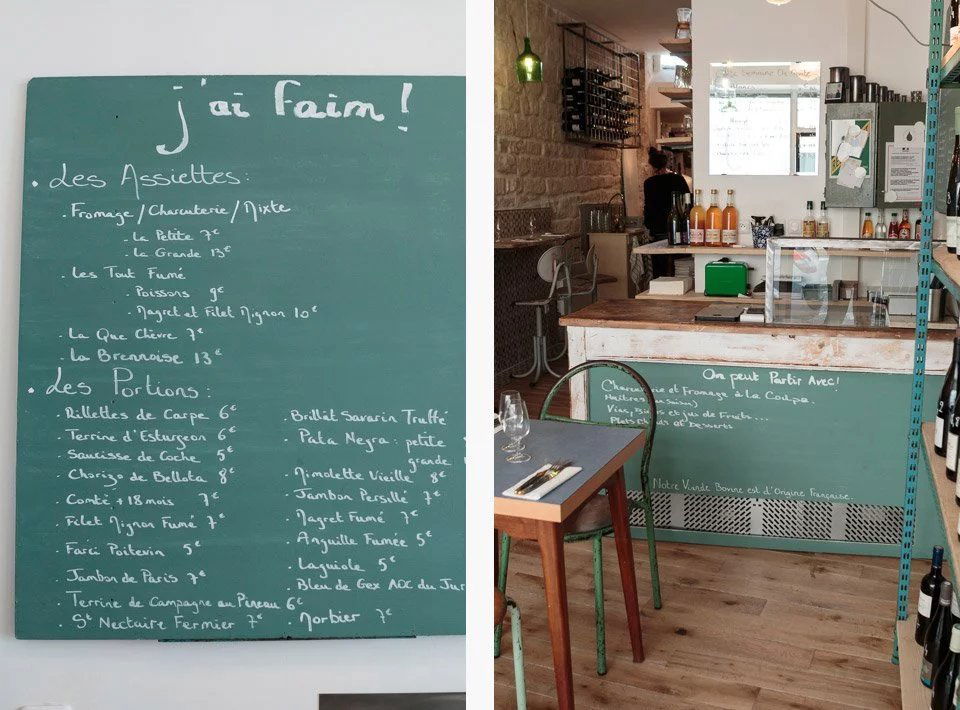 j'ai faim !
. Les Assiettes :
. Fromage / Charcuterie / Mixte
. La Petite 7€
. La Grande 13€
. Les Tout Fumé
. Poissons 9€
. Magret et Filet Mignon 10€
. La Que Chèvre 7€
. La Brennoise 13€
. Les Portions :
. Rillettes de Carpe 6€
. Terrine d'Esturgeon 6€
. Saucisse de Coche 5€
. Chorizo de Bellota 8€
. Comté +18 mois 7€
. Filet Mignon Fumé 7€
. Farci Poitevin 5€
. Jambon de Paris 7€
. Terrine de Campagne au Pineau 6€
. St Nectaire Fermier 7€
. Brillat Savarin Truffé
. Pata Negra : petite
grande
. Mimolette Vieille 8€
. Jambon Persillé 7€
. Magret Fumé 7€
. Anguille Fumée 5€
. Laguiole 5€
. Bleu de Gex AOC du Jur
. Morbier 7€
On peut Partir Avec !
Charcuterie et Fromage à la Coupe.
Vins, Bières et jus de Fruits....
Plats Chauds et Desserts
Notre Viande Bovine est d'Origine Française.